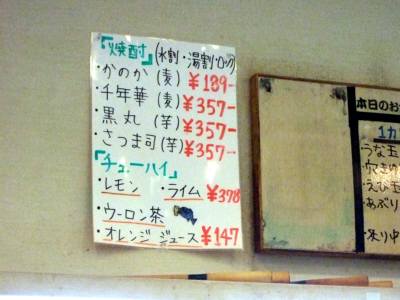 「焼酎」(水割・湯割・ロック)
・かのか(麦)¥189-
・千年華(麦)¥357-
・黒丸(芋)¥357-
・さつま司(芋)¥357-
「チューハイ」
・レモン ・ライム ¥378
・ウーロン茶
・オレンジジュース ¥147
本日のお
1カ
うな玉
えび玉
あぶり